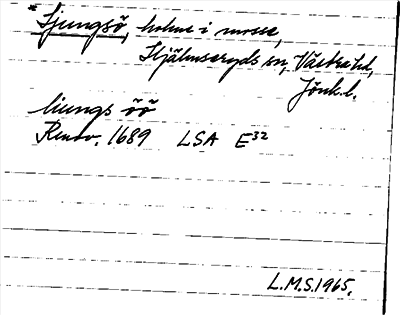 *Ljungsö, holme i mosse,
Hjälmseryds sn, Västra hd,
Jönk.l.
liungs öö
Renov. 1689 LSA E32
L.M.S.1965.